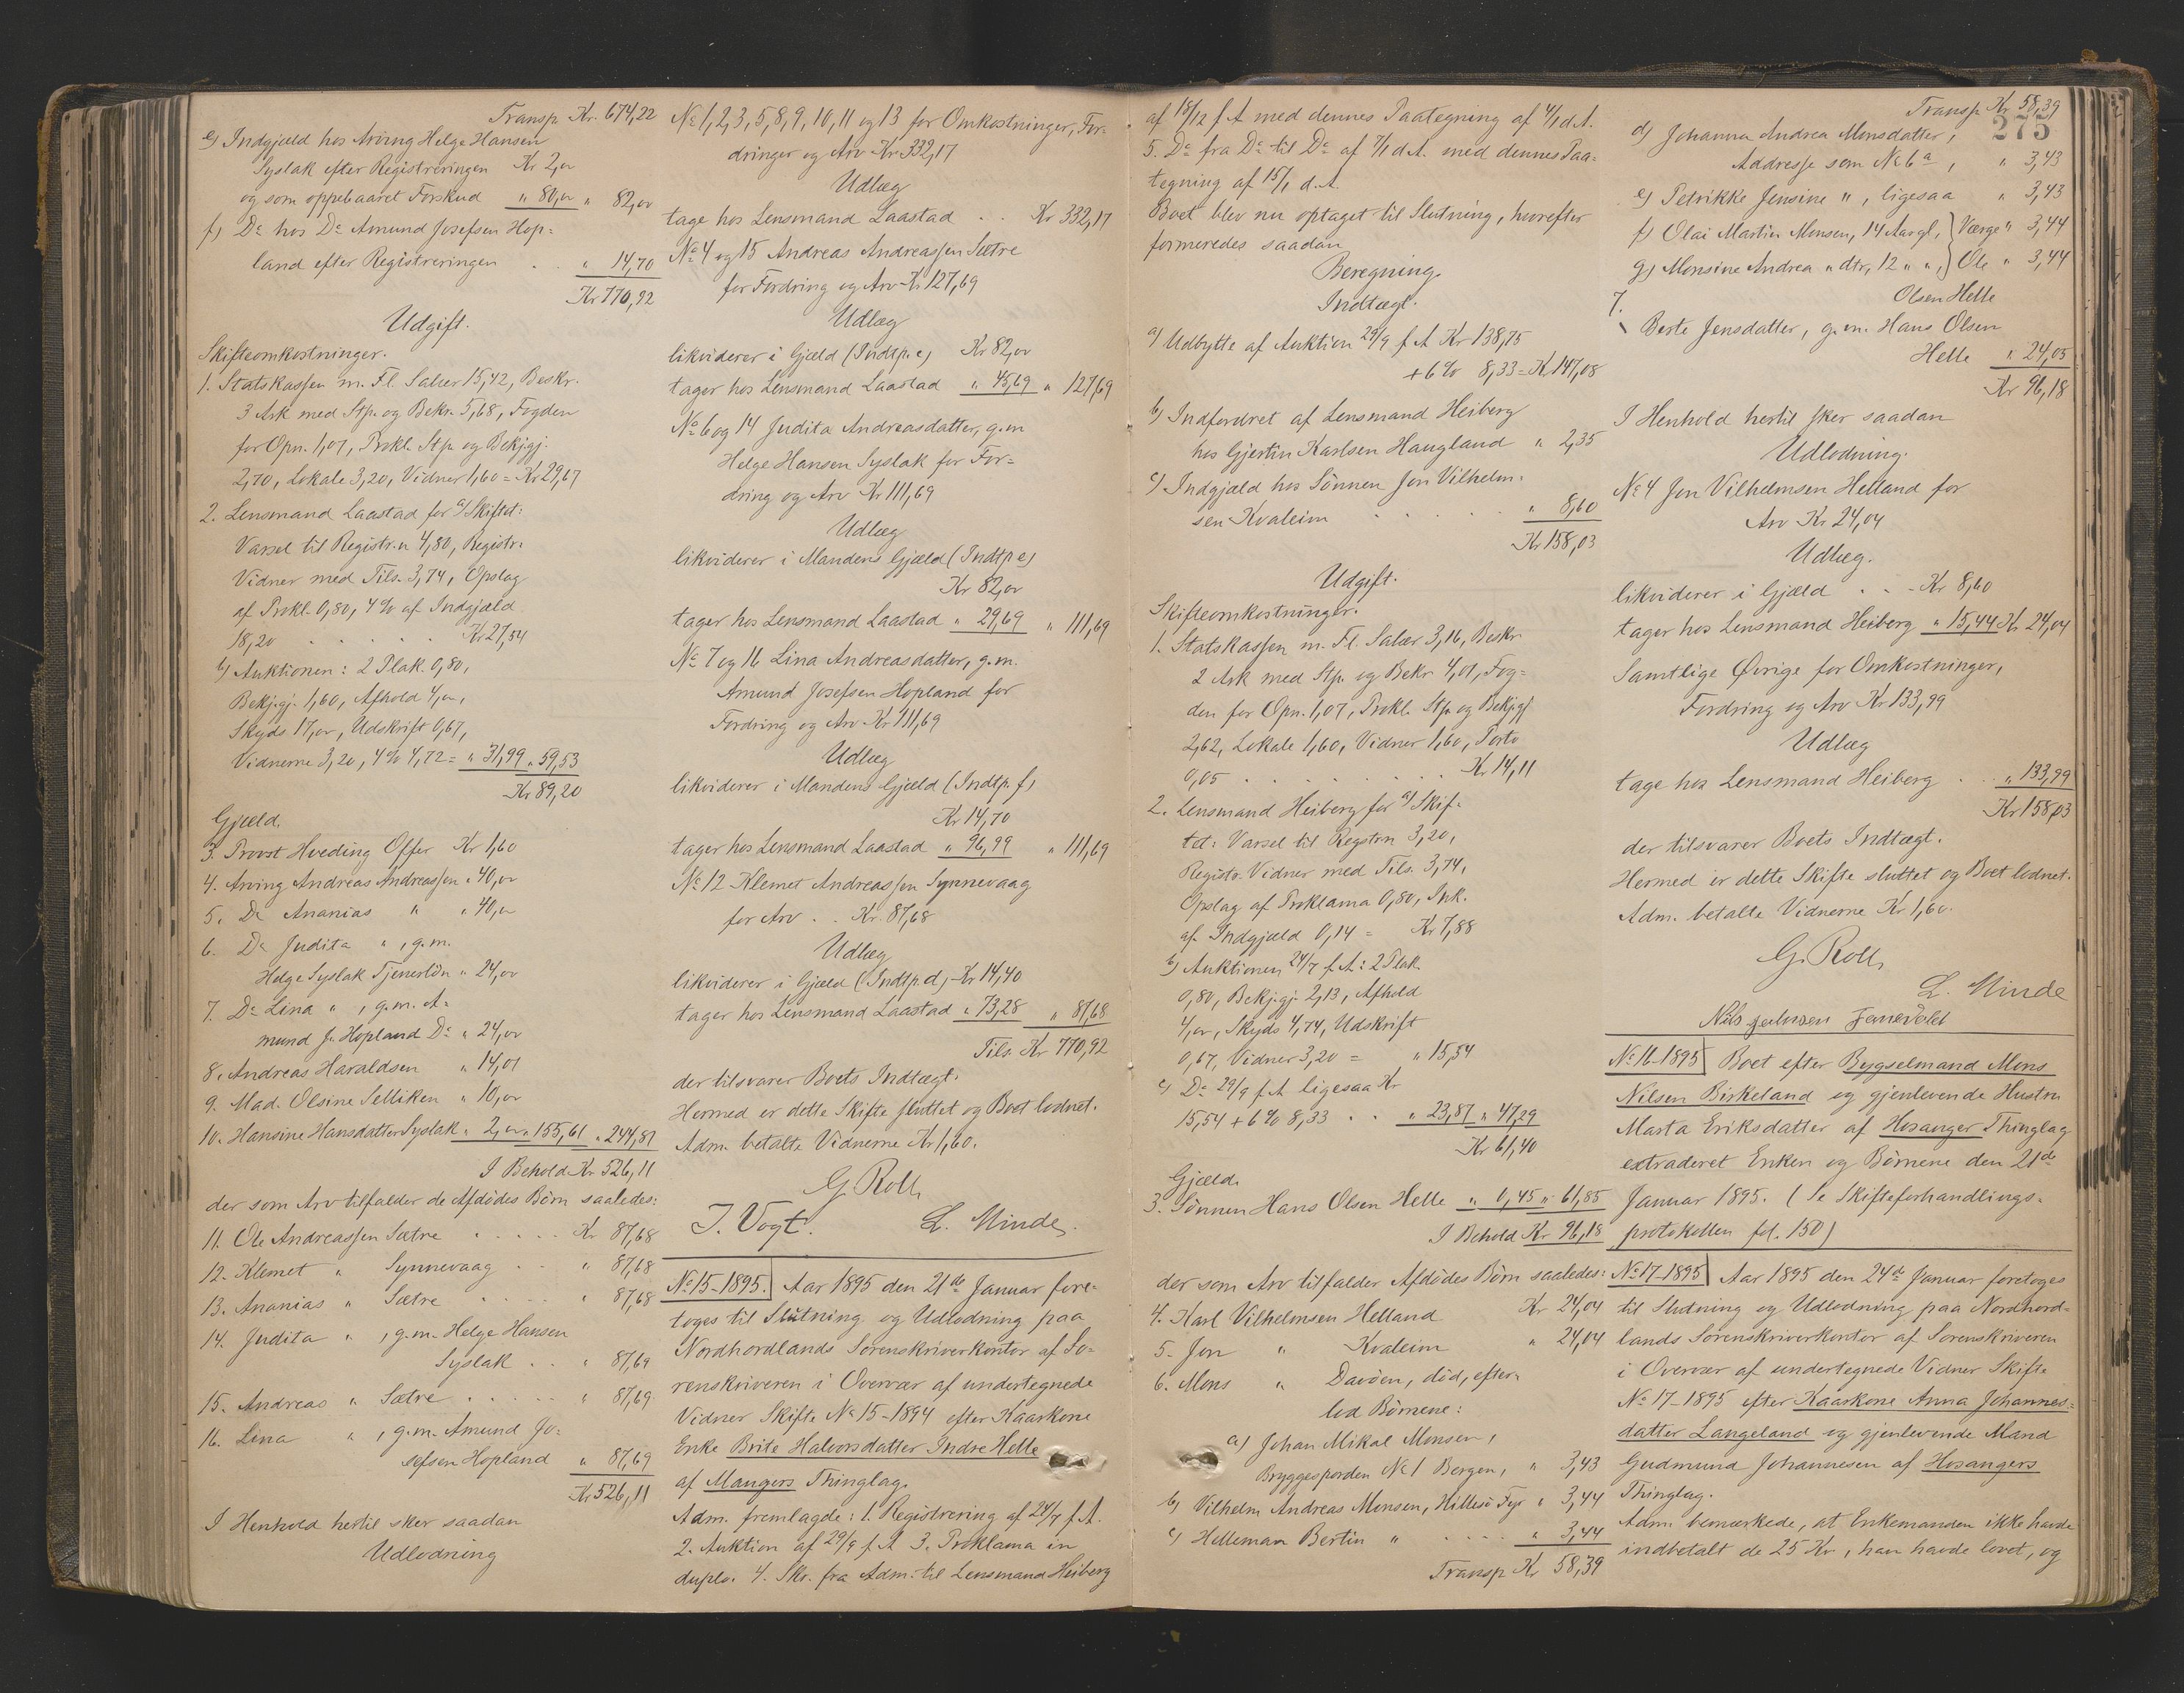 Transp. Kr. 674,22
e) Indgjæld hos Arving Helge Hansen
Syslak efter Registreringen Kr 2,00
og som oppebaaret Forskud " 80,00 " 82,00
f) Do hos Do Amund Josefsen Hop=
land efter Registreringen . " 14,70
Kr 770,92
Udgift.
Skifteomkostninger.
1. Statskassen m. Fl. Salær 15,42, Beskr.
3 Ark med Stp. og Bekr. 5,68, Fogden
for Opn. 1,07, Prokl. Stp. og Bekjgj.
2,70, Lokale 3,20, Vidner 1,60 = Kr 29,67
2. Lensmand Laastad for a) Skiftet:
Varsel til Registr.n 4,80, Registr.
Vidner med Tils. 3,74, Opslag
af Prokl. 0,80, 4 % af Indgjæld
18,20 . . . . . Kr 27,54
b) Auktionen: 2 Plak. 0,80,
Bekjgj. 1,60, Afhold 4,00,
Skyds 17,00, Udskrift 0,67,
Vidnerne 3,20, 4 % 4,72 = " 31,99 " 59,53
Kr 89,20
Gjæld.
3. Provst Hveding Offer Kr 1,60
4. Arving Andreas Andreassen " 40,00
5. Do Ananias " " 40,00
6. Do Judita " , g.m.
Helge Syslak Tjenerløn " 24,00
7. Do Lina " , g.m. A=
mund J. Hopland Do " 24,00
8. Andreas Haraldsen " 14,01
9. Mad. Olsine Selliken " 10,00
10. Hansine Hansdatter Syslak " 2,00 " 155,61 " 244,81
I Behold Kr 526,11
der som Arv tilfalder de Afdødes Børn saaledes:
11. Ole Andreassen Sætre . . . . . Kr 87,68
12. Klemet " Synnevaag . . " 87,68
13. Ananias " Sætre . . . . " 87,68
14. Judita " , g.m. Helge Hansen
Syslak . . " 87,69
15. Andreas " Sætre . . . . . " 87,69
16. Lina " , g.m. Amund Jo=
sefsen Hopland " 87,69
Kr 526,11
I Henhold hertil sker saadan
Udlodning
No 1, 2, 3, 5, 8, 9, 10, 11 og 13 for Omkostninger, For=
dringer og Arv Kr 332,17
Udlæg
tage hos Lensmand Laastad . . Kr 332,17
No 4 og 15 Andreas Andreassen Sætre
for Fordring og Arv Kr 127,69
Udlæg
likviderer i Gjæld (Indtp. e) Kr 82,00
tager hos Lensmand Laastad " 45,69 " 127,69
No 6 og 14 Judita Andreasdatter, g.m
Helge Hansen Syslak for For=
dring og Arv Kr 111,69
Udlæg
likviderer i Mandens Gjæld (Indtp e)
Kr 82,00
tager hos Lensmand Laastad " 29,69 " 111,69
No 7 og 16 Lina Andreasdatter, g.m.
Amund Josefsen Hopland for
Fordring og Arv Kr 111,69
Udlæg
likviderer i Mandens Gjæld (Indtp. f)
Kr 14,70
tager hos Lensmand Laastad " 96,99 " 111,69
No 12 Klemet Andreassen Synnevaag
for Arv . . Kr. 87,68
Udlæg
likviderer i Gjæld (Indtp. d) Kr 14,40
tager hos Lensmand Laastad " 73,28 " 87,68
Tils. Kr 770,92
der tilsvarer Boets Indtægt.
Hermed er dette Skifte sluttet og Boet lodnet.
Adm. betalte Vidnerne Kr 1,60.
G. Roll
J. Vogt. L. Minde.
No 15-1895. Aar 1895 den 21de Januar fore=
toges til Slutning og Udlodning paa
Nordhordlands Sorenskriverkontor af So=
renskriveren i Overvær af undertegnede
Vidner Skifte No 15-1894 efter Kaarkone
Enke Brite Halvorsdatter Indre Helle
af Mangers Thinglag.
Adm. fremlagde: 1. Registrering af 24/7 f.A.
2. Auktion af 29/9 f A 3. Proklama in
duplo. 4. Skr. fra Adm. til Lensmand Heiberg
af 18/12 f A med dennes Paategning af 4/1 d.A.
5. Do fra Do til Do af 7/1 d.A. med dennes Paa=
tegning af 15/1 d.A.
Boet blev nu optaget til Slutning, hvorefter
formeredes saadan
Beregning.
Indtægt.
a) Udbytte af Auktion 29/9 f.A Kr 138,75
+ 6 % 8,33 = Kr 147,08
b) Indfordret af Lensmand Heiberg
hos Gjertin Karlsen Haugland " 2,35
c) Indgjæld hos Sønnen Jon Vilhelm=
sen Kvaleim . . . . . " 8,60
Kr 158,03
Udgift.
Skifteomkostninger.
1. Statskassen m. Fl. Salær 3,16, Beskr.
2 Ark med Stp. og Bekr 4,01, Fog=
den for Opn. 1,07, Prokl. Stp. og Bekjgj
2,62, Lokale 1,60, Vidner 1,60, Porto
0,05 . . . . . . . Kr 14,11
2. Lensmand Heiberg for a) Skif=
tet: Varsel til Regstrn 3,20,
Registr. Vidner med Tils. 3,74,
Opslag af Proklama 0,80, Ink.
af Indgjæld 0,14 = Kr 7,88
b) Auktionen 24/7 f.A: 2 Plak.
0,80, Bekjgj. 2,13, Afhold
4,00, Skyds 4,74, Udskrift
0,67, Vidner 3,20 = " 15,54
c) Do 29/9 f.A ligesaa Kr
15,54 + 6 % 8,33 . . " 23,87 " 47,29
Kr 61,40
Gjæld.
3. Sønnen Hans Olsen Helle " 0,45 " 61,85
I Behold Kr 96,18
der som Arv tilfalder Afdødes Børn saaledes:
4. Karl Vilhelmsen Helland Kr 24,04
5. Jon " Kvaleim " 24,04
6. Mons " Davøen, død, efter=
lod Børnene:
a) Johan Mikal Monsen,
Bryggesporden No 1 Bergen, " 3,43
b) Vilhelm Andreas Monsen, Hillesø Fyr " 3,44
c) Helleman Bertin " . . . . " 3,44
Transp Kr 58,39
Transp Kr 58,39
275
d) Johanna Andrea Monsdatter,
Addresse som No 6a, " 3,43
e) Petrikke Jensine " , ligesaa " 3,43
f) Olai Martin Monsen, 14 Aar gl, } Værge " 3,44
g) Monsine Andrea " dtr, 12 " " , } Ole " 3,44
Olsen Helle
7. Berte Jensdatter, g.m. Hans Olsen
Helle " 24,05
Kr 96,18
I Henhold hertil sker saadan
Udlodning.
No 4 Jon Vilhelmsen Helland for
Arv Kr 24,04
Udlæg.
likviderer i Gjæld . . - Kr 8,60
tager hos Lensmand Heiberg " 15,44 Kr 24,04
Samtlige Øvrige for Omkostninger,
Fordring og Arv Kr 133,99
Udlæg
tage hos Lensmand Heiberg . . " 133,99
Kr 158,03
der tilsvarer Boets Indtægt.
Hermed er dette Skifte sluttet og Boet lodnet.
Adm. betalte Vidnerne Kr 1,60.
G. Roll
L. Minde
Nils
No 16-1895 Boet efter Bygselmand Mons
Nilsen Birkeland og gjenlevende Hustru
Marta Eriksdatter af Hosanger Thinglag
extraderet Enken og Børnene den 21de
Januar 1895. (Se Skifteforhandlings=
protokollen fol. 150)
No 17-1895 Aar 1895 den 24de Januar foretoges
til Slutning og Udlodning paa Nordhord=
lands Sorenskriverkontor af Sorenskriveren
i Overvær af undertegnede Vidner Skifte
No 17-1895 efter Kaarkone Anna Johannes=
datter Langeland og gjenlevende Mand
Gudmund Johannesen af Hosangers
Thinglag.
Adm. bemærkede, at Enkemanden ikke havde
indbetalt de 25 Kr, han havde lovet, og